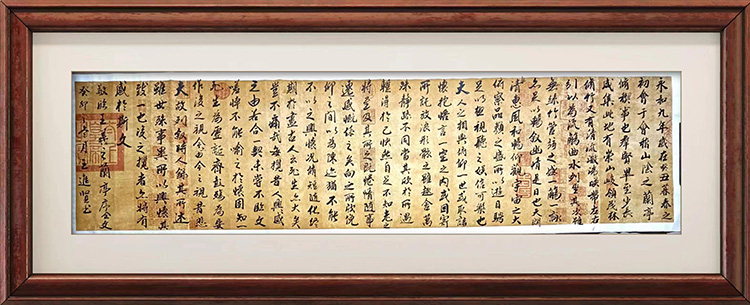 永和九年歲在癸丑暮春之
初會于會稽山陰之蘭亭
脩禊事也羣賢畢至少長
咸集此地有崇山峻領茂林
脩竹又有清流激湍暎帶左右
引以為流觴曲水列坐其次雖
無絲竹管弦之盛一觴一詠
亦足以暢敘幽情是日也天朗
清惠風和暢仰觀宇宙之大
俯察品類之盛所以遊目騁懷
足以極視聽之娛信可樂也
夫人之相與俯仰一世或取諸
懷抱悟言一室之內或因寄
所託放浪形骸之外雖趣舍萬
殊靜躁不同當其欣於所遇
暫得於己快然自足不知老之
將至及其所之既惓情隨事
遷感慨係之矣向之所欣俛
仰之間以為陳迹猶不能
不以之興懷況脩短隨化終
期於盡古人云死生亦大矣
豈不痛哉每攬昔人興感
之由若合一契未嘗不臨文
嗟悼不能喻之於懷固知一
死生為虛誕齊彭殤為妄
作後之視今亦由今之視昔悲
夫故列敘時人錄其所述
雖世殊事異所以興懷其
致一也後之攬者亦將有
感於斯文
敬臨王羲之蘭亭序全文
癸卯年月王進書